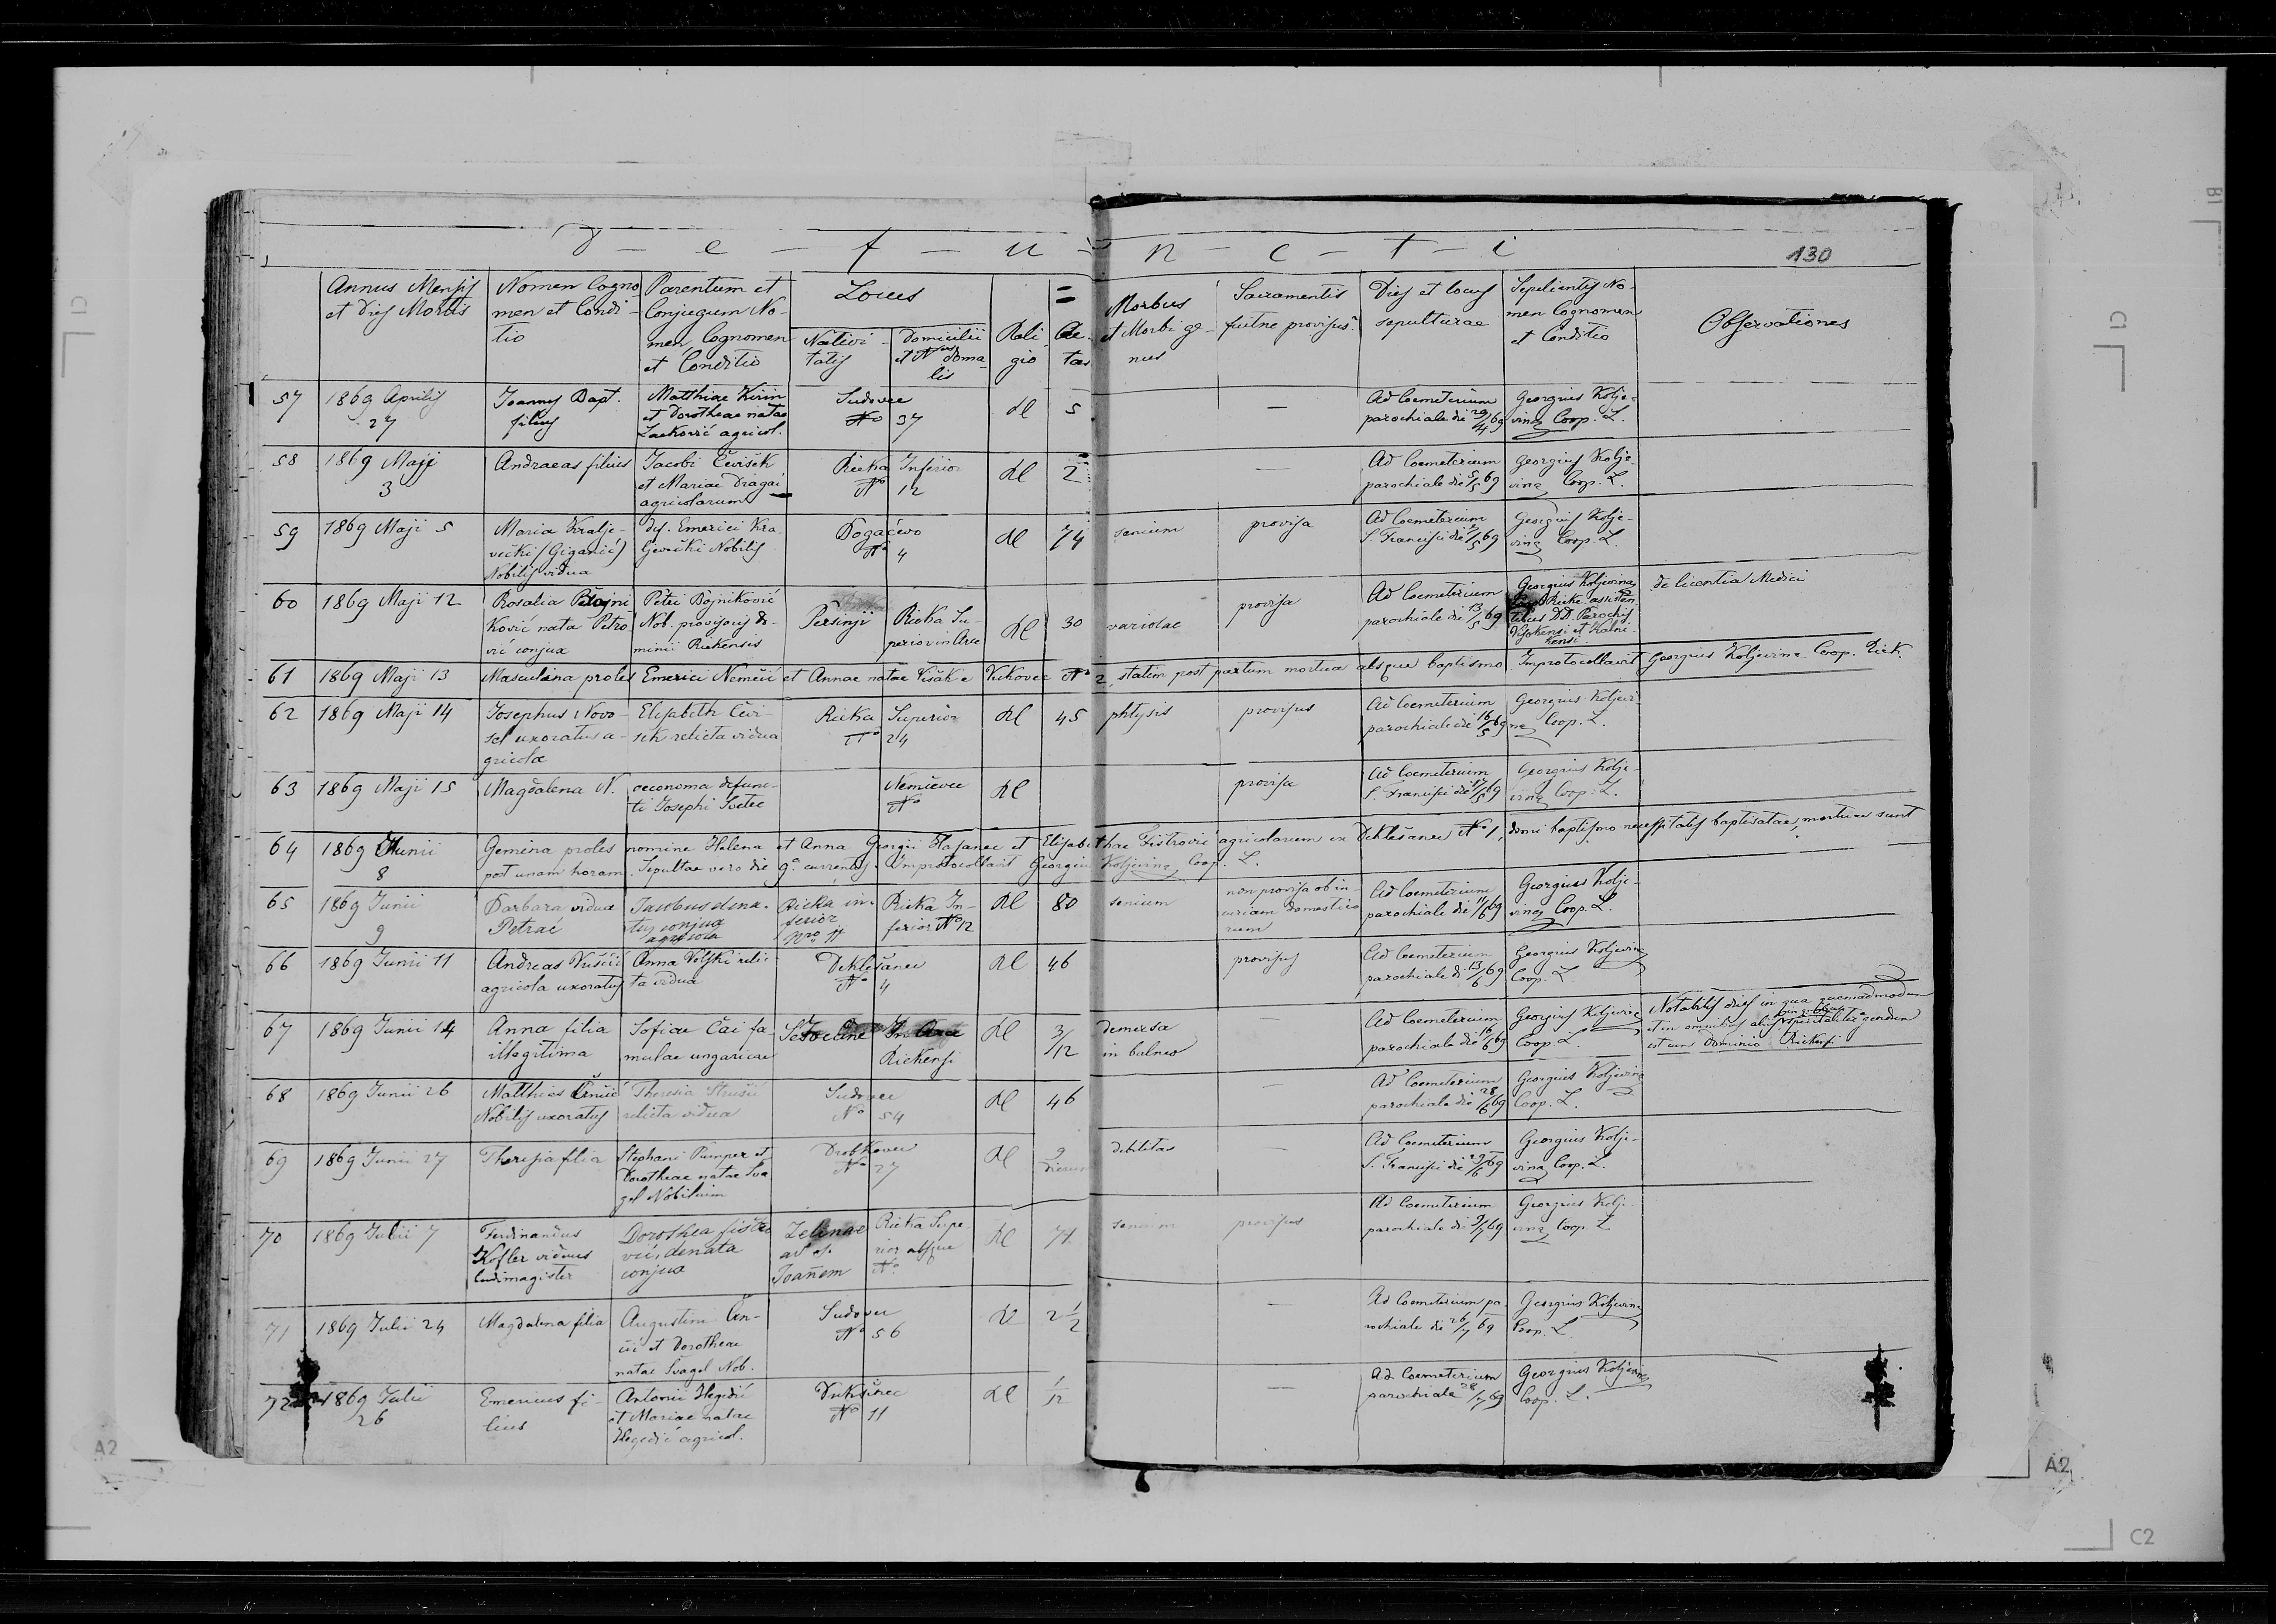 D - e - f - u - n - c - t - i
130
Annus Mensis et Dies Mortis
Nomen Cognomen et Conditio
Parentum et Conjugum Nomen, Cognomen et Conditio
Locus
Nativitatis
Domicilii et Nrus domalis
Religio
Aetas
Morbus et Morbi genus
Sacramentis fuitne provisus?
Dies et locus sepulturae
Sepelientis Nomen Cognomen et Conditio
Observationes
57 1869 Aprilis 27 Joannes Bapt. filius Matthiae Kirin et Dorotheae natae Lacković agricol. Sudovec No 37 Rl 5 — Ad Coemeterium parochiale die 29/4 69 Georgius Koljevina Coop. L.
58 1869 Maji 3 Andraeas filius Jacobi Čevišek et Mariae Dragai agricolarum Rieka Inferior No 12 Rl 2 — Ad Coemeterium parochiale die 5/5 69 Georgius Koljevina Coop. L.
59 1869 Maji 5 Maria Kraljevečki (Giganić) Nobilis vidua def. Emerici Kraljevečki Nobilis Pogačevo No 4 Rl 74 senium provisa Ad Coemeterium S. Francisci die /5 69 Georgius Koljevina Coop. L.
60 1869 Maji 12 Rosalia Bojniković nata Petrović conjux Petri Bojniković Nob. provisoris dominii Riekensis Peršinji Rieka Superior in Arce Rl 30 variolae provisa Ad Coemeterium parochiale die 13/5 69 Georgius Koljevina Coop. Riek. assisten tibus DD. Parochis Visokensi et Kalnikensi. de licentia Medici
61 1869 Maji 13 Masculina proles Emerici Nemčić et Annae natae Višak e Kukovec No 2, statim post partum mortua absque baptismo Improtocollavit Georgius Koljevina Coop. Riek.
62 1869 Maji 14 Josephus Novosel uxoratus agricola Elisabeth Čevisek relicta vidua Rieka Superior No 24 Rl 45 phtysis provisus Ad Coemeterium parochiale die 16/5 69 Georgius Koljevina Coop. L.
63 1869 Maji 15 Magdalena N. oeconoma defuncti Josephi Svetec Nemčevec No Rl provisa Ad Coemeterium S. Francisci die 17/5 69 Georgius Koljevina Coop. L.
64 1869 Junii 8 Gemina proles nomine Helena et Anna Georgii Hasanec et Elisabethae Fištrović agricolarum ex Deklešanec No 1, domi baptismo necessitatis baptisatae, mortuae sunt
post unam horam. Sepultae vero die 9a currentis. Improtocollavit Georgius Koljevina Coop. L.
65 1869 Junii 9 Barbara vidua Petrač Jacobus denatus conjux agricola Rieka inferior Nro 11 Rieka Inferior No 12 Rl 80 senium non provisa ob incuriam domesticorum Ad Coemeterium parochiale die 11/6 69 Georgius Koljevina Coop. L.
66 1869 Junii 11 Andreas Vuščić agricola uxoratus Anna Voljski relicta vidua Deklešanec No 4 Rl 46 provisus Ad Coemeterium parochiale di 13/6 69 Georgius Koljevina Coop. L
67 1869 Junii 14 Anna filia illegitima Sofiae Čai famulae ungaricae In Arce Riekensi Rl 3/12 demersa in balneo — Ad Coemeterium parochiale die 16/6 69 Georgius Koljevina Coop L. Notabilis dies in qua quemadmodum et in omnibus aliis spiritualiter agendum est cum Dominio Riekensi
68 1869 Junii 26 Matthias Črnčić Nobilis uxoratus Theresia Strušić relicta vidua Sudovec No 54 Rl 46 — Ad Coemeterium parochiale die 28/6 69 Georgius Koljevina Coop. L.
69 1869 Junii 27 Theresia filia Stephani Pumper et Dorotheae natae Švagel Nobilium Drobkovec No 27 Rl 9 dierum debilitas — Ad Coemeterium S. Francisci die 29/6 69 Georgius Koljevina Coop. L.
70 1869 Julii 7 Ferdinandus Kofler viduus ludimagister Dorothea Fištrović, denata conjux Zelinae ad S. Joañem Rieka Superior absque No. Rl 71 senium provisus Ad Coemeterium parochiale di 9/7 69 Georgius Koljevina Coop. L
71 1869 Julii 24 Magdalena filia Augustini Črnčić et Dorotheae natae Švagel Nob. Sudovec No 56 Rl 2 1/2 — Ad Coemeterium parochiale die 26/7 69 Georgius Koljevina Coop. L
72 1869 Julii 26 Emericus filius Antonii Hegedić et Mariae natae Hegedić agricol. Vukšinec No 11 Rl 1/12 — Ad Coemeterium parochiale 28/7 69 Georgius Koljevina Coop. L.
C1
C1
B1
A2
A2
C2